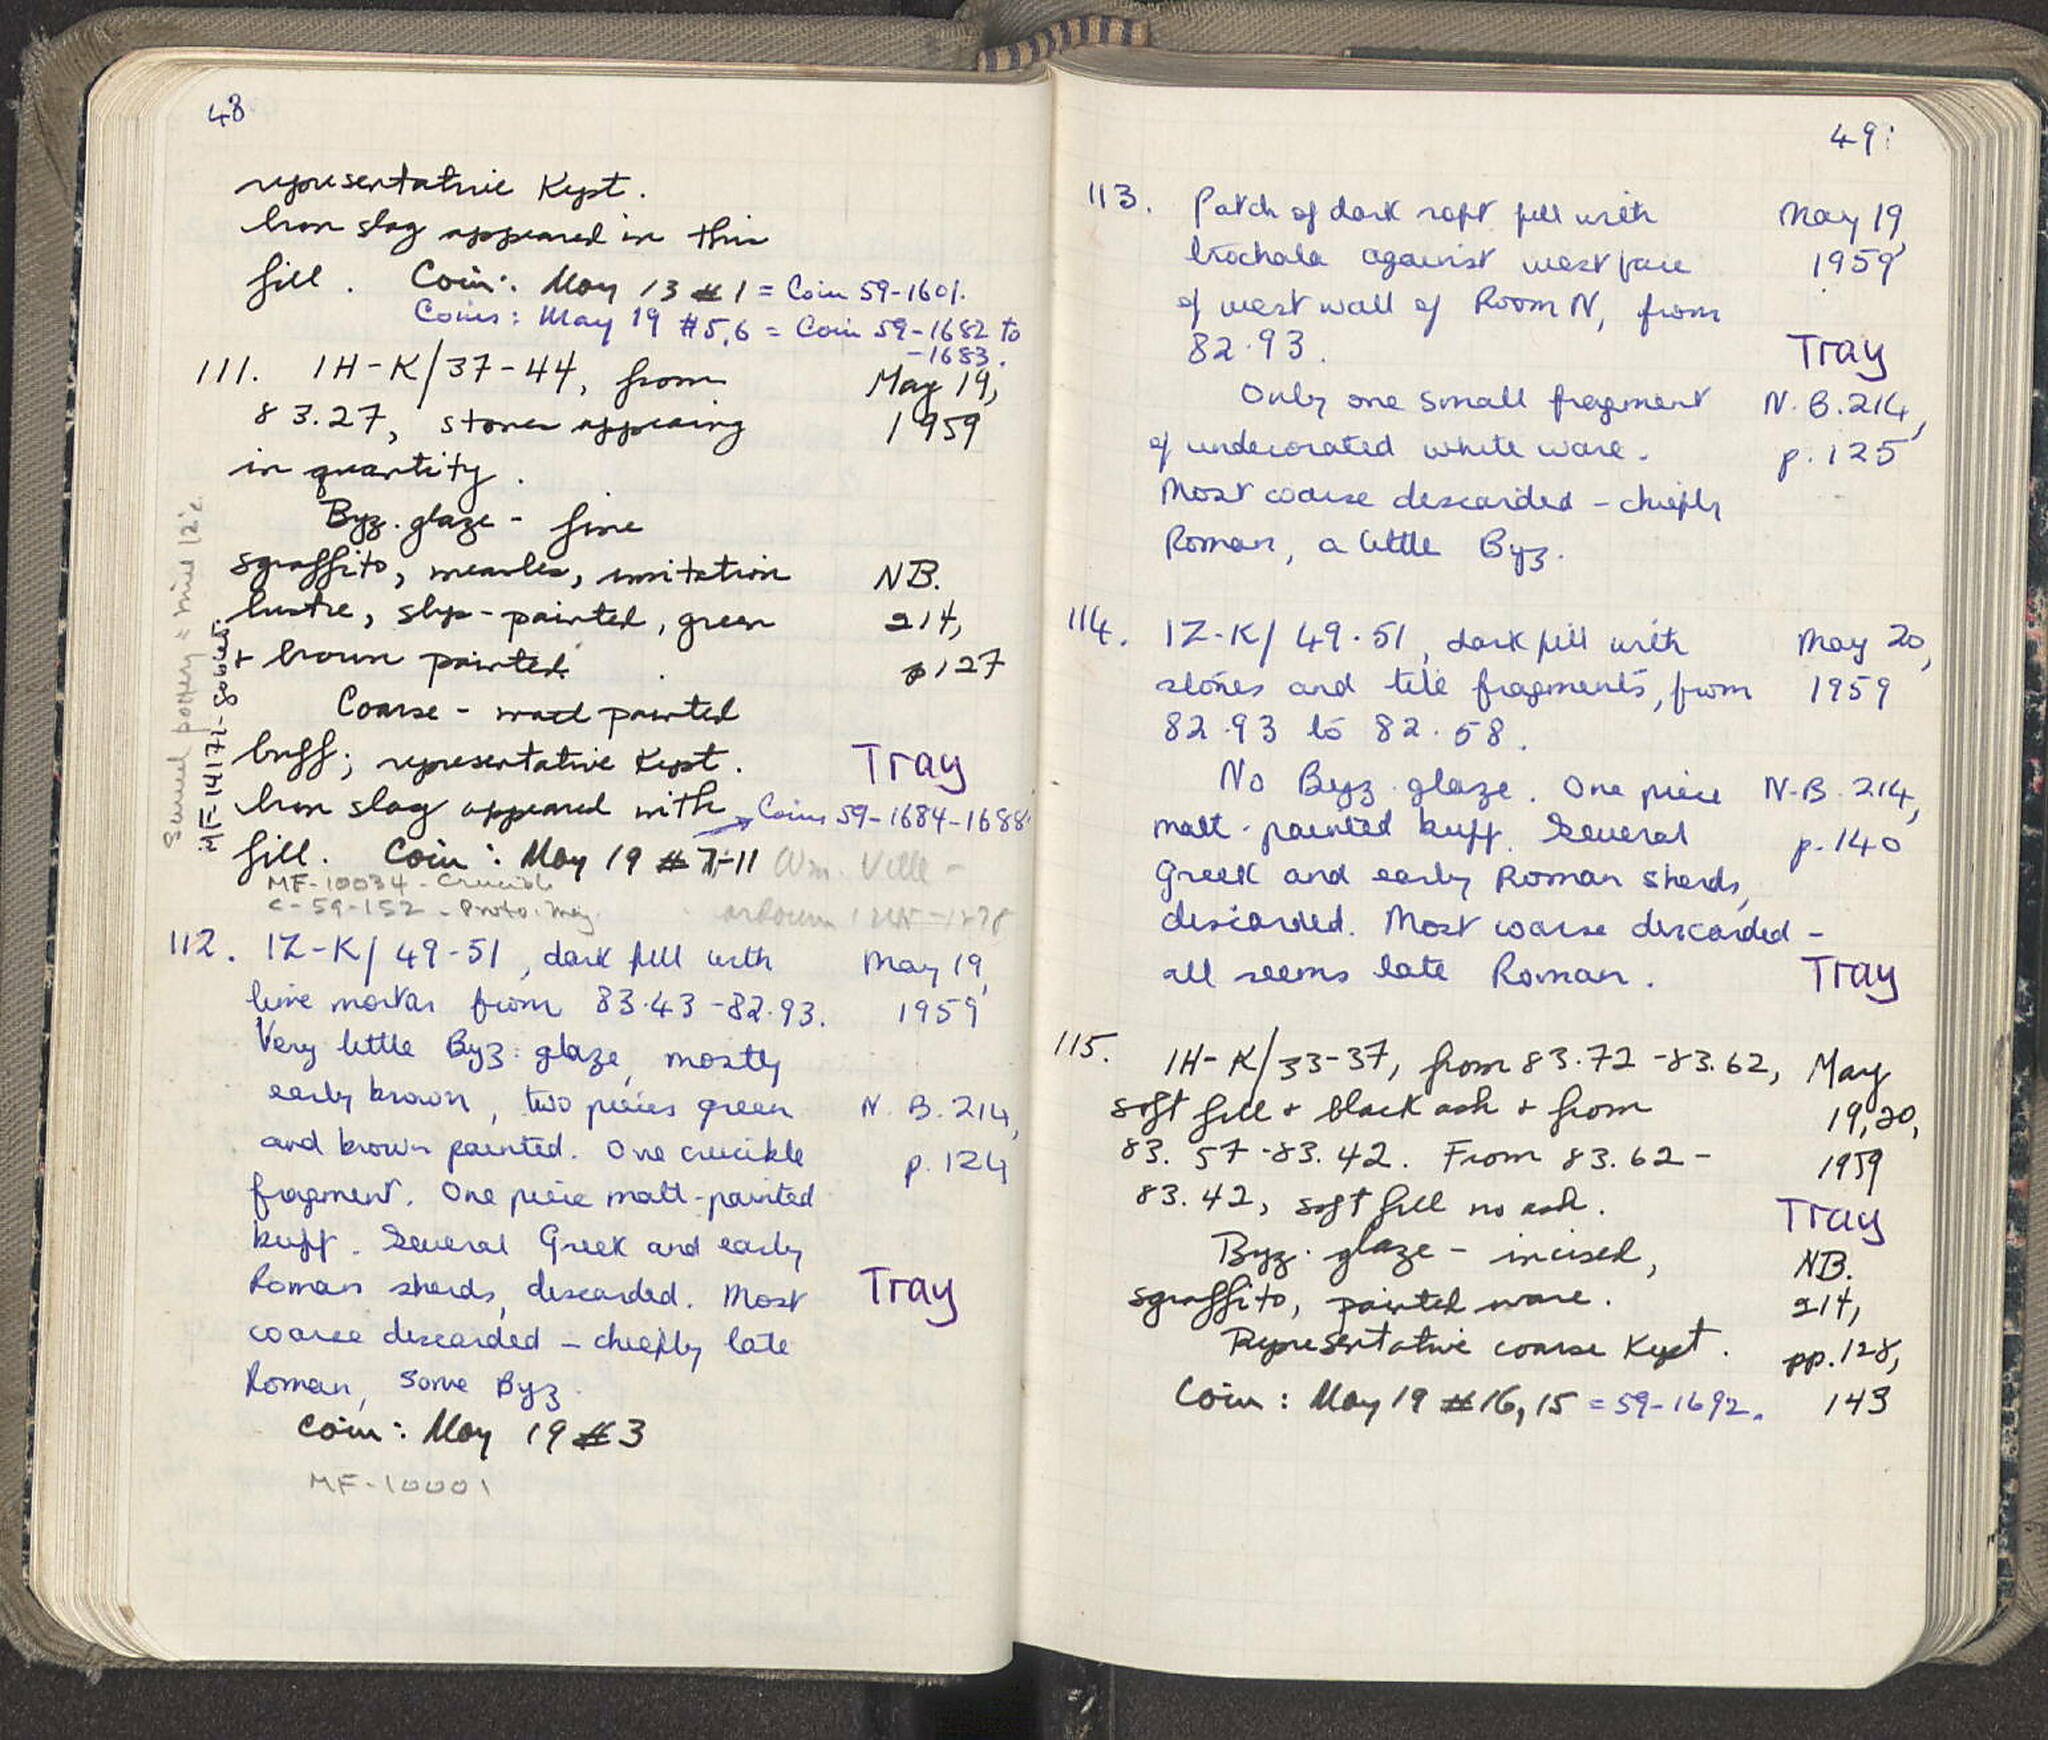 48
representative Kept.
Iron slag appeared in this
fill. Coin: May 13 #1 = Coin 59-1601.
Coins: May 19 #5,6 = Coin 59-1682 to
-1683.
111. 1H-K/37-44, from May 19,
83.27, stones appearing 1959
in quantity.
Byz. glaze - fine
sgraffito, measles, imitation NB.
lustre, slip-painted, green 214,
+ brown painted. p127
Coarse - matt painted
buff; representative Kept. Tray
Iron slag appeared with Coins 59-1684-1688
fill. Coin: May 19 #7-11 Wm. Ville-
MF-10034 - Crucible
C-59-152 - Proto. Maj.
pottery = mid 12 c.
MF-14171-Goblet.
112. 1Z-K/49-51, dark fill with May 19,
lime mortar from 83.43-82.93. 1959
Very little Byz. glaze, mostly
early brown, two pieces green N.B. 214,
and brown painted. One crucible p. 124
fragment. One piece matt-painted
buff. Several Greek and early
Roman sherds, discarded. Most Tray
coarse discarded - chiefly late
Roman, some Byz.
Coin: May 19 #3
MF-10001
49
113. Patch of dark soft fill with May 19,
trochala against west face 1959
of west wall of Room N, from
82.93. Tray
Only one small fragment N.B. 214,
of undecorated white ware. p. 125
Most coarse discarded - chiefly
Roman, a little Byz.
114. 1Z-K/49-51, dark fill with May 20,
stones and tile fragments, from 1959
82.93 to 82.58.
No Byz. glaze. One piece N.B. 214,
matt-painted buff. Several p. 140
Greek and early Roman sherds,
discarded. Most coarse discarded -
all seems late Roman. Tray
115. 1H-K/33-37, from 83.72-83.62, May
soft fill + black ash + from 19,20,
83.57-83.42. From 83.62- 1959
83.42, soft fill no ash. Tray
Byz. glaze - incised, NB.
sgraffito, painted ware. 214,
Representative coarse Kept. pp. 128,
Coin: May 19 #16, 15 = 59-1692. 143